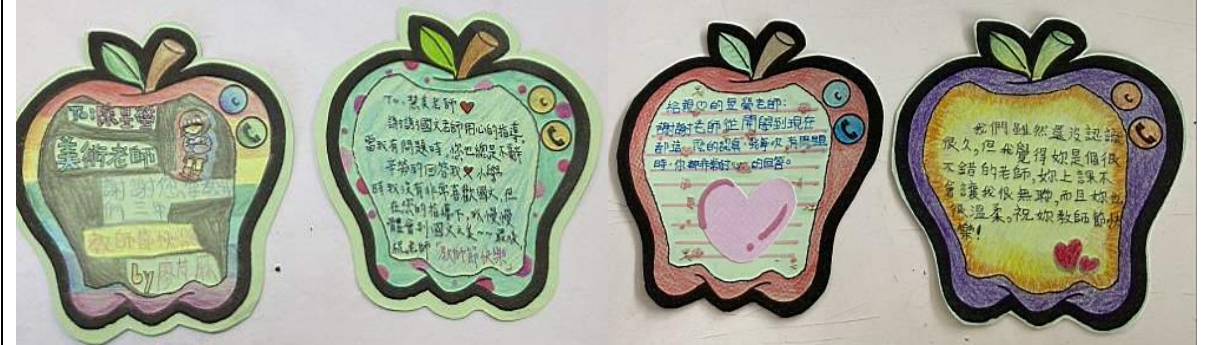 To:陳昱螢
美術老師
謝謝您
教師節快樂
by
To:慧美老師
謝謝國文老師用心的指導,
當我有問題時,您也總是不辭
辛勞的回答我 小學
時我沒有非常喜歡國文,但
在您的指導下,我慢慢
體會到國文之美~~最後
祝老師「教師節快樂」
給親 的昱螢老師:
謝謝老師從開學到現在
都這 的認真,我每次有問題
時,你都非常 心的回答。
我們雖然還沒認識
很久,但我覺得妳是個很
不錯的老師,妳上課不
會讓我很無聊,而且妳也
很溫柔,祝妳教師節快
樂!